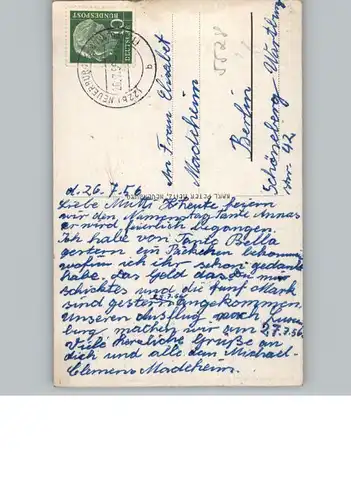 DEUTSCHE
BUNDESPOST
(22b) NEUERBURG
b
An Frau Elisabet
Madcheim
Berlin
Schöneberg - Wartburg
str. 42
KARL PETER HEITZ, NEUERBURG
d. 26.7.56
Liebe Mutti Heute feiern
wir den Namenstag Tante Annas
er wird feierlich begangen.
Ich habe von Tante Bella
gestern ein Päkchen bekomm
wofür ich ihr schon gedankt
habe. Das Geld das Du mir
schicktes und die fünf Mark
sind gestern angekommen.
unseren Ausflug nach Luxem
burg machen wir am 27.7.56.
Viele herzliche Grüße an
dich und alle dein Michael-
Clemens Madcheim.